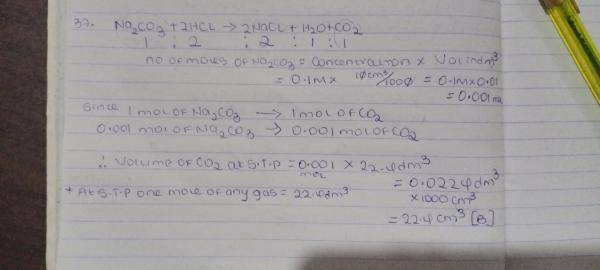 37. Na2CO3 + 2HCL → 2NaCL + H2O + CO2
1 : 2 : 2 : 1 : 1
no of moles of Na2CO3 = Concentration × Vol indm3
= 0.1M × 10cm3/1000 = 0.1M × 0.01
= 0.001
Since 1 mol of Na2CO3 → 1 mol of CO2
0.001 mol of Na2CO3 → 0.001 mol of CO2
∴ Volume of CO2 at S.T.P = 0.001 mol × 22.4dm3
= 0.0224dm3
+ At S.T.P one mole of any gas = 22.4dm3
×1000cm3
= 22.4cm3 [B]